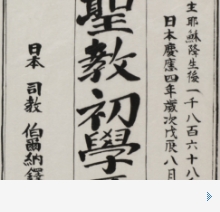 主耶穌降生後一千八百六十八
日本慶應四年歲次戊辰八月
聖教初學
日本 司教 伯爾納鐸